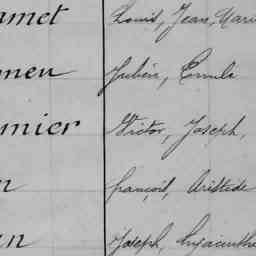 amet Louis, Jean, Mari
men Julien, Emile
mier Victor, Joseph,
n François, Aristide
an Joseph, Hyacinthe